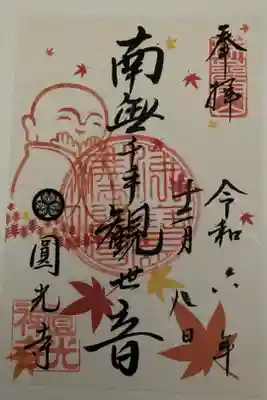 奉拝
令和六年
十二月八日
南無千手観世音
圓光寺